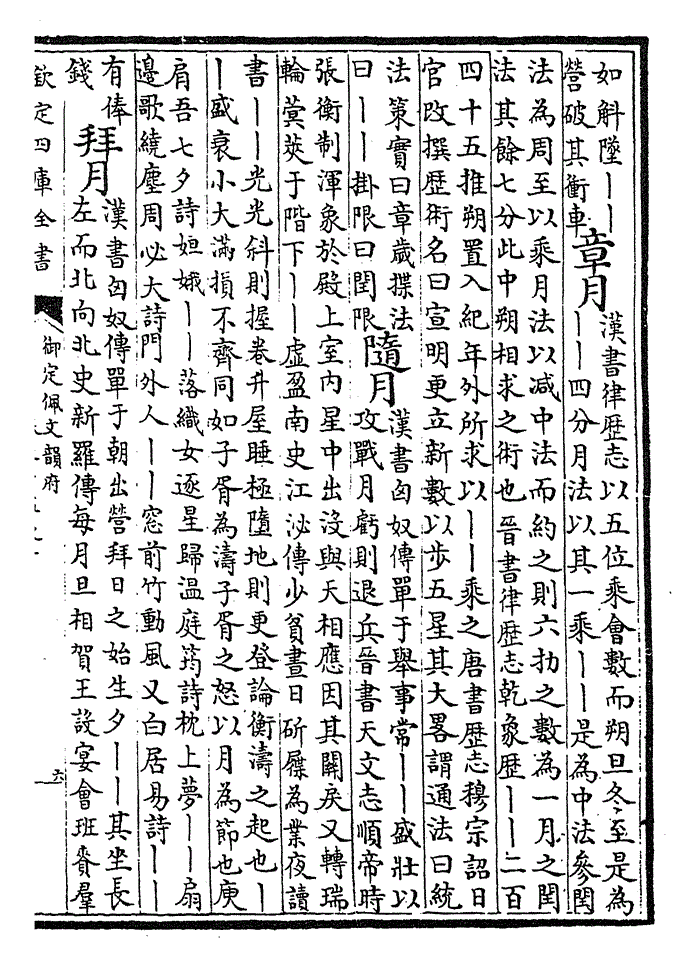 如斛墜丨丨
營破其衝車
章月
漢書律歷志以五位乘會數而朔旦冬至是為
丨丨四分月法以其一乘丨丨是為中法參閏
法為周至以乘月法以减中法而約之則六扐之數為一月之閏
法其餘七分此中朔相求之術也晉書律歷志乾象歷丨丨二百
四十五推朔置入紀年外所求以丨丨乘之唐書歷志穆宗詔日
官改撰歷術名曰宣明更立新數以步五星其大畧謂通法曰統
法策實曰章歲揲法
曰丨丨掛限曰閏限
隨月
漢書匈奴傳單于舉事常丨丨盛壯以
攻戰月虧則退兵晉書天文志順帝時
張衡制渾象於殿上室内星中出没與天相應因其關戾又轉瑞
輪蓂莢于階下丨丨虛盈南史江泌傳少貧晝日斫屧為業夜讀
書丨丨光光斜則握卷升屋睡極墮地則更登論衡濤之起也丨
丨盛衰小大滿損不齊同如子胥為濤子胥之怒以月為節也庾
肩吾七夕詩姮娥丨丨落織女逐星歸温庭筠詩枕上夢丨丨扇
邊歌繞塵周必大詩門外人丨丨窓前竹動風又白居易詩丨丨
有俸
錢
拜月
漢書匈奴傳單于朝出營拜日之始生夕丨丨其坐長
左而北向北史新羅傳每月旦相賀王設宴會班賚羣
欽定四庫全書
御定佩文韻府
六